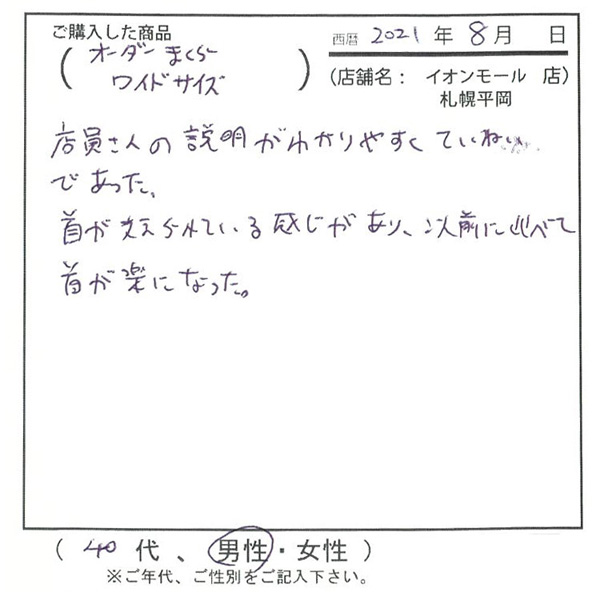 ご購入した商品
(オーダーまくら
ワイドサイズ)
西暦 2021 年 8月 日
(店舗名： イオンモール 店)
札幌平岡
店員さんの説明がわかりやすくていねい
であった。
首が支えられている感じがあり、以前に比べて
首が楽になった。
( 40 代 、 男性・女性 )
※ご年代、ご性別をご記入下さい。